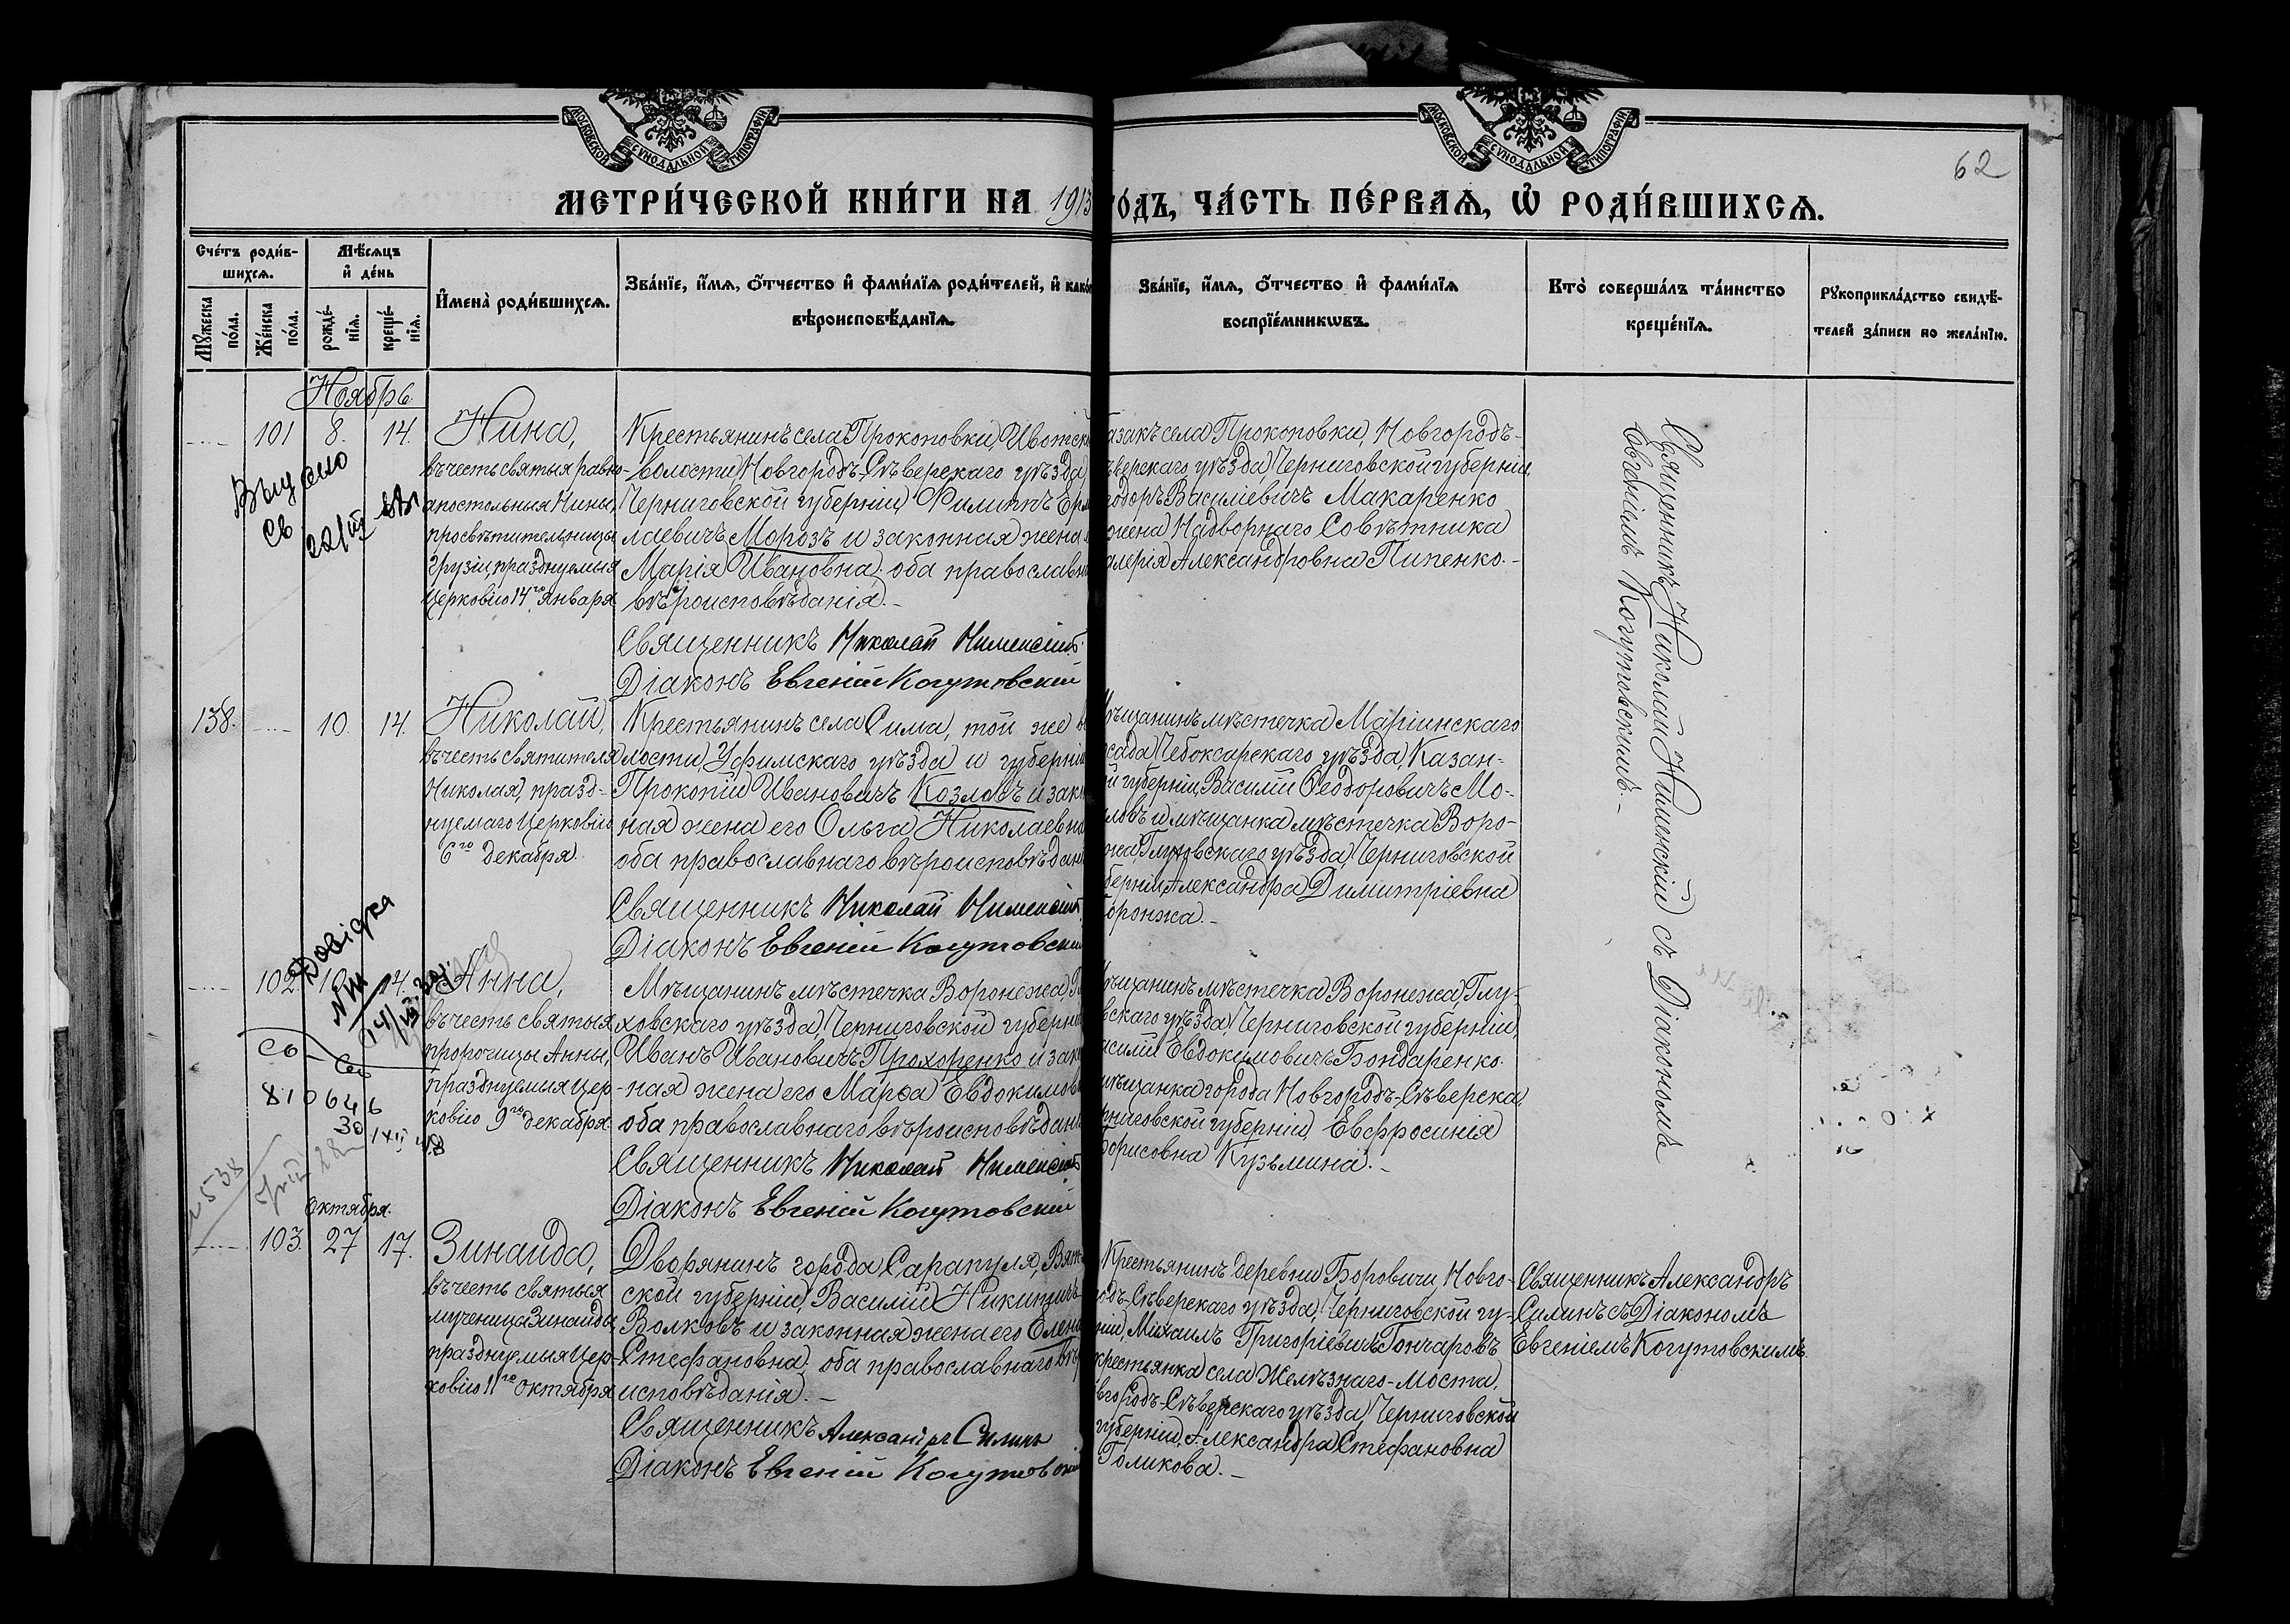 МОСКОВСКОЙ СѴНОДАЛЬНОЙ ТИПОГРАФІИ
МОСКОВСКОЙ СѴНОДАЛЬНОЙ ТИПОГРАФІИ
62
МЕТРИ́ЧЕСКОЙ КНИ́ГИ НА 1913
ГО́ДЪ, ЧА́СТЬ ПЕ́РВАѦ, Ѡ҆ РОДИ́ВШИХСѦ.
Сче́тъ роди́в-
шихсѧ.
Мѣ́сѧцъ
и҆ де́нь
Мꙋ́жеска
по́ла.
Же́нска
по́ла.
рожде́-
нїѧ.
креще́-
нїѧ.
И҆мена̀ роди́вшихсѧ.
Зва́нїе, и҆́мѧ, ѻ҆́тчество и҆ фами́лїѧ роди́телей, и҆ како́
вѣроисповѣ́данїѧ.
Зва́нїе, и҆́мѧ, ѻ҆́тчество и҆ фами́лїѧ
воспрїе́мникѡвъ.
Кто̀ соверша́лъ та́инство
креще́нїѧ.
Рꙋкоприкла́дство свидѣ́-
телей за́писи по жела́нїю.
Ноябрь
101 8. 14.
Нина,
въ честь святыя равно-
апостольныя Нины,
просвѣтительницы
Грузіи, празднуемыя
Церковію 14го Января
Крестьянинъ села Прокоповки, Ивотск
волости, Новгородъ-Сѣверскаго уѣзда,
Черниговской губерніи, Филиппъ Ерм
лаевичъ Морозъ и законная жена
Марія Ивановна, оба православн
вѣроисповѣданія.-
Священникъ Николай Нименскій
Діаконъ Евгеній Когутовскій
азакъ села Прокоповки, Новгородъ-
ѣверскаго уѣзда, Черниговской губерніи,
одоръ Василіевичъ Макаренко
жена Надворнаго Совѣтника
алерія Александровна Пипенко.-
Священникъ Николай Нименскій съ Діакономъ
Евгеніемъ Когутовскимъ.-
22/III
138. 10. 14.
Николай,
въ честь святителя
Николая, празд-
нуемаго Церковію
6го декабря.
Крестьянинъ села Сима, той же в
лости, Уфимскаго уѣзда и губерніи
Прокопій Ивановичъ Козловъ и зак
ная жена его Ольга Николаевна
оба православнаго вѣроисповѣдан
Священникъ Николай Нименскій
Діаконъ Евгеній Когутовскій
ѣщанинъ мѣстечка Маріинскаго
сада, Чебоксарскаго уѣзда, Казан-
й губерніи, Василій Ѳеодоровичъ Мо-
ловъ и мѣщанка мѣстечка Воро-
жа, Глуховскаго уѣзда, Черниговской
берніи, Александра Димитріевна
оронжа.-
Довідка
102. 10. 14.
Анна,
въ честь святыя
пророчицы Анны,
празднуемыя Цер-
ковію 9го декабря
Мѣщанинъ мѣстечка Воронежа, Гл
ховскаго уѣзда, Черниговской губерні
Иванъ Ивановичъ Прохоренко и зак
ная жена его Марѳа Евдокимов
оба православнаго вѣроисповѣдані
Священникъ Николай Нименскій
Діаконъ Евгеній Когутовскій
ѣщанинъ мѣстечка Воронежа, Глу-
вскаго уѣзда, Черниговской губерніи,
асилій Евдокимовичъ Бондаренко.
мѣщанка города Новгородъ-Сѣверска,
рниговской губерніи, Евфросинія
Борисовна Кузьмина.-
810646
538
Октября.
103. 27 17.
Зинаида,
въ честь святыя
мученицы Зинаиды,
празднуемыя Цер-
ковію 11го Октября
Дворянинъ города Сарапуля, Вят-
ской губерніи, Василій Никитичъ
Волковъ и законная жена его Елена
Стефановна, оба православнаго вѣр
исповѣданія.-
Священникъ Александръ Силинъ
Діаконъ Евгеній Когутовскій
Крестьянинъ деревни Боровичи, Новго-
одъ-Сѣверскаго уѣзда, Черниговской гу-
ніи, Михаилъ Григоріевичъ Гончаровъ
крестьянка села Желѣзнаго-Моста,
вгородъ-Сѣверскаго уѣзда, Черниговской
губерніи, Александра Стефановна
Голикова.-
Священникъ Александръ
Силинъ съ Діакономъ
Евгеніемъ Когутовскимъ.